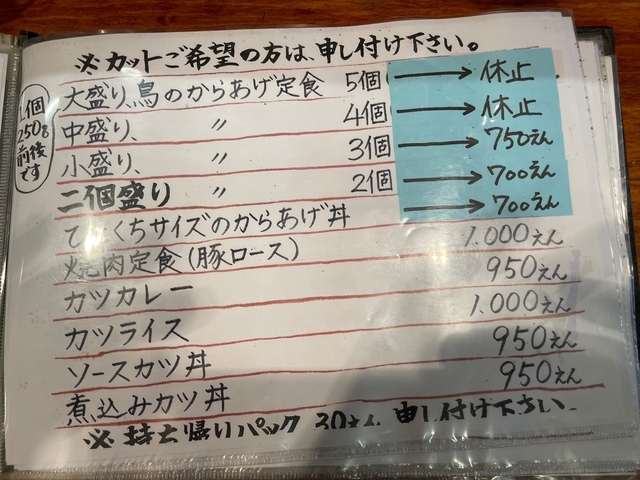 ※カットご希望の方は、申し付け下さい。
1個250g前後です
大盛り、鳥のからあげ定食 5個 → 休止
中盛り、 〃 4個 → 休止
小盛り、 〃 3個 → 750えん
二個盛り 〃 2個 → 700えん
ひとくちサイズのからあげ丼 → 700えん
焼肉定食(豚ロース) 1.000えん
カツカレー 950えん
カツライス 1.000えん
ソースカツ丼 950えん
煮込みカツ丼 950えん
※持ち帰りパック 30えん 申し付け下さい。